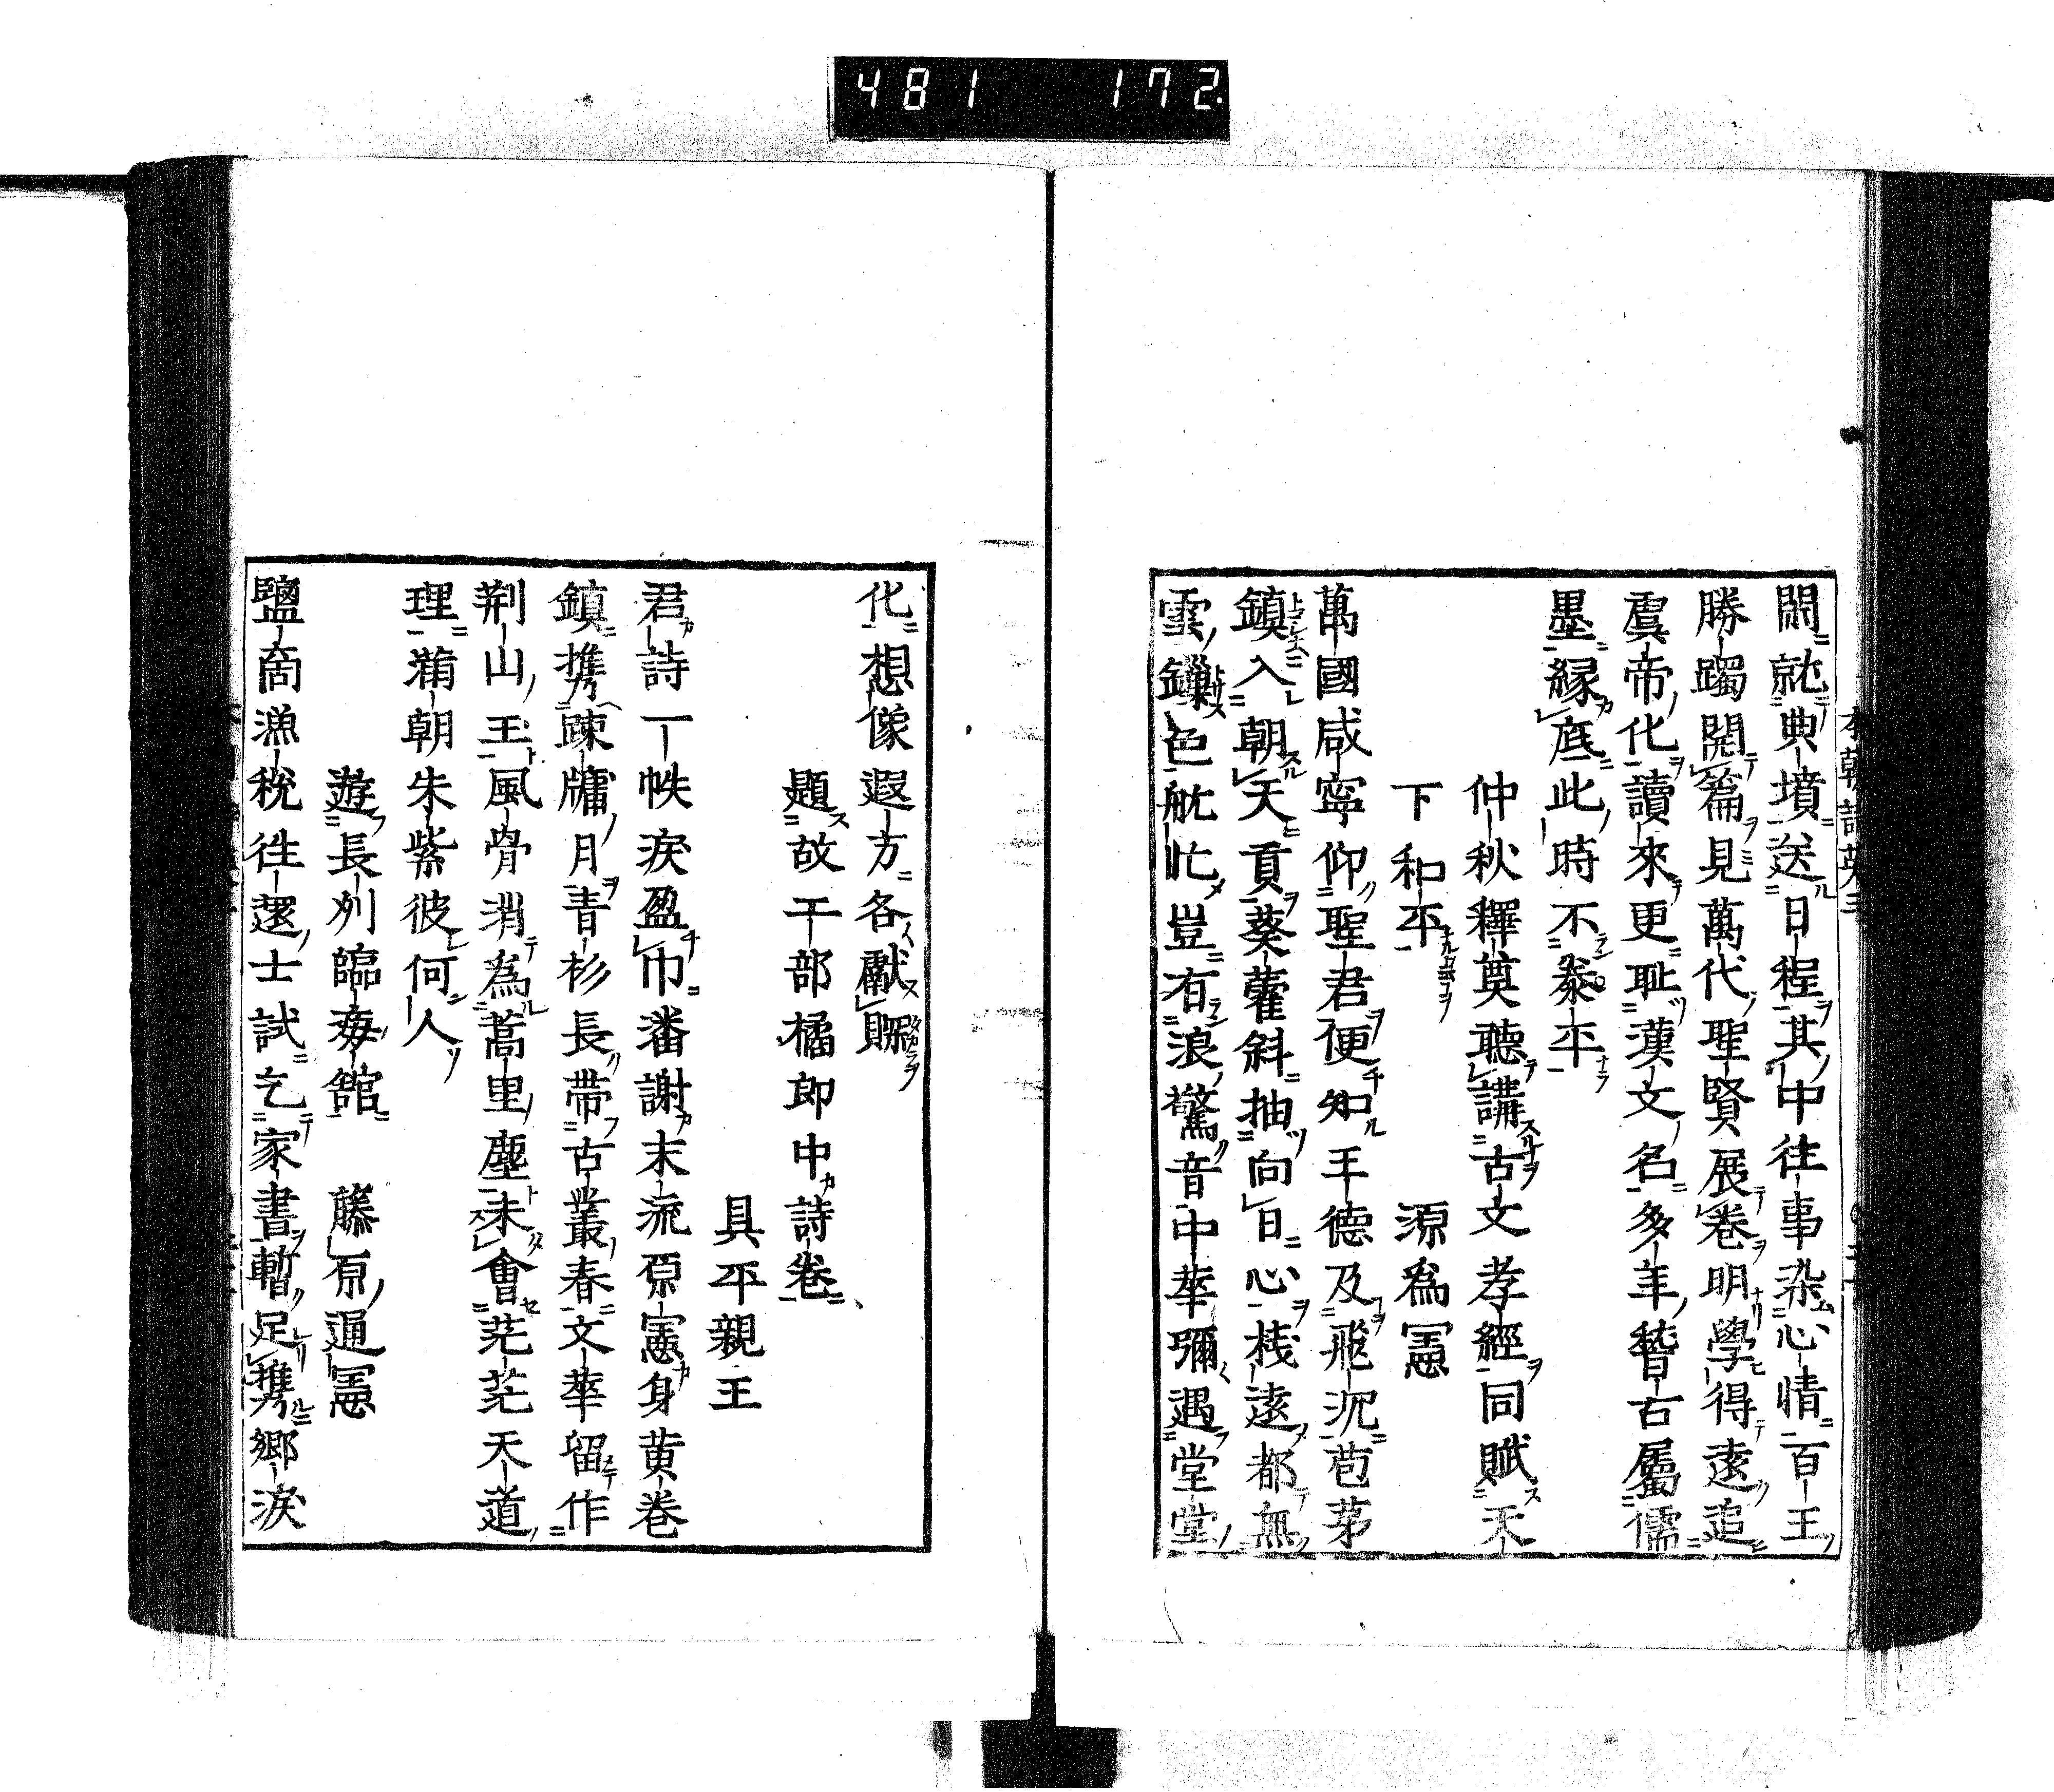 481 172.
閑就典墳送日程其中往事染心情百王
勝躅開篇見萬代聖賢展卷明學得遠追
虞帝化讀來更耻漢文名多年稽古屬儒
墨縁底此時不泰平
仲秋釋奠聽講古文孝經同賦天
下和平
源爲憲
萬國咸寧仰聖君便知王德及飛沉苞茅
鎮入朝天貢葵藿斜抽向日心棧遠都無
雲鏁色航忙豈有浪驚音中華彌遇堂堂
化想像遐方各獻賝
題故干部橘郎中詩卷
具平親王
君詩一帙淚盈巾潘謝末流原憲身黄卷
鎮携踈牖月青衫長帶古叢春文華留作
荆山玉風骨消為蒿里塵未會茫茫天道
理滿朝朱紫彼何人
遊長州臨海館
藤原通憲
鹽商漁稅往還士試乞家書暫足携鄉淚